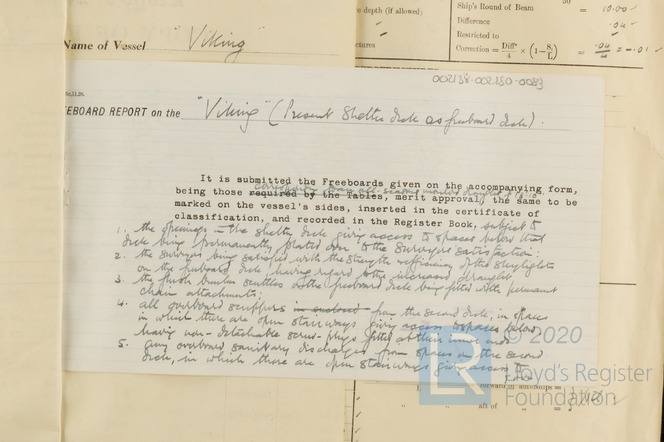 e depth (if allowed)
Ship's Round of Beam
10.00
Difference
.04
Restricted to
Correction = Diffce/4 × (1 − S1/L) = .04/4 = - .01
ctures
Name of Vessel "Viking"
002138-002150-0083
EEBOARD REPORT on the "Viking" (Present Shelter deck as freeboard deck).
It is submitted the Freeboards given on the accompanying form,
being those required by the Tables, merit approval, the same to be
marked on the vessel's sides, inserted in the certificate of
classification, and recorded in the Register Book, subject to
1. the openings in the shelter deck giving access to spaces below that
deck being permanently plated over to the Surveyors satisfaction;
2. the surveyors being satisfied with the strength & efficiency of the skylights
on the freeboard deck having regard to the increased draught
3. the flush bunker scuttles on the freeboard deck being fitted with permanent
chain attachments;
4. all overboard scuppers in enclosed from the second deck, in spaces
in which there are open stairways giving access to spaces below,
having non-detachable screw-plugs fitted at their inner ends
5. any overboard sanitary discharges from spaces on the second
deck, in which there are open stairways giving access to
© 2020
LR
Lloyd's Register
Foundation
forward of amidships =
" " aft of " =